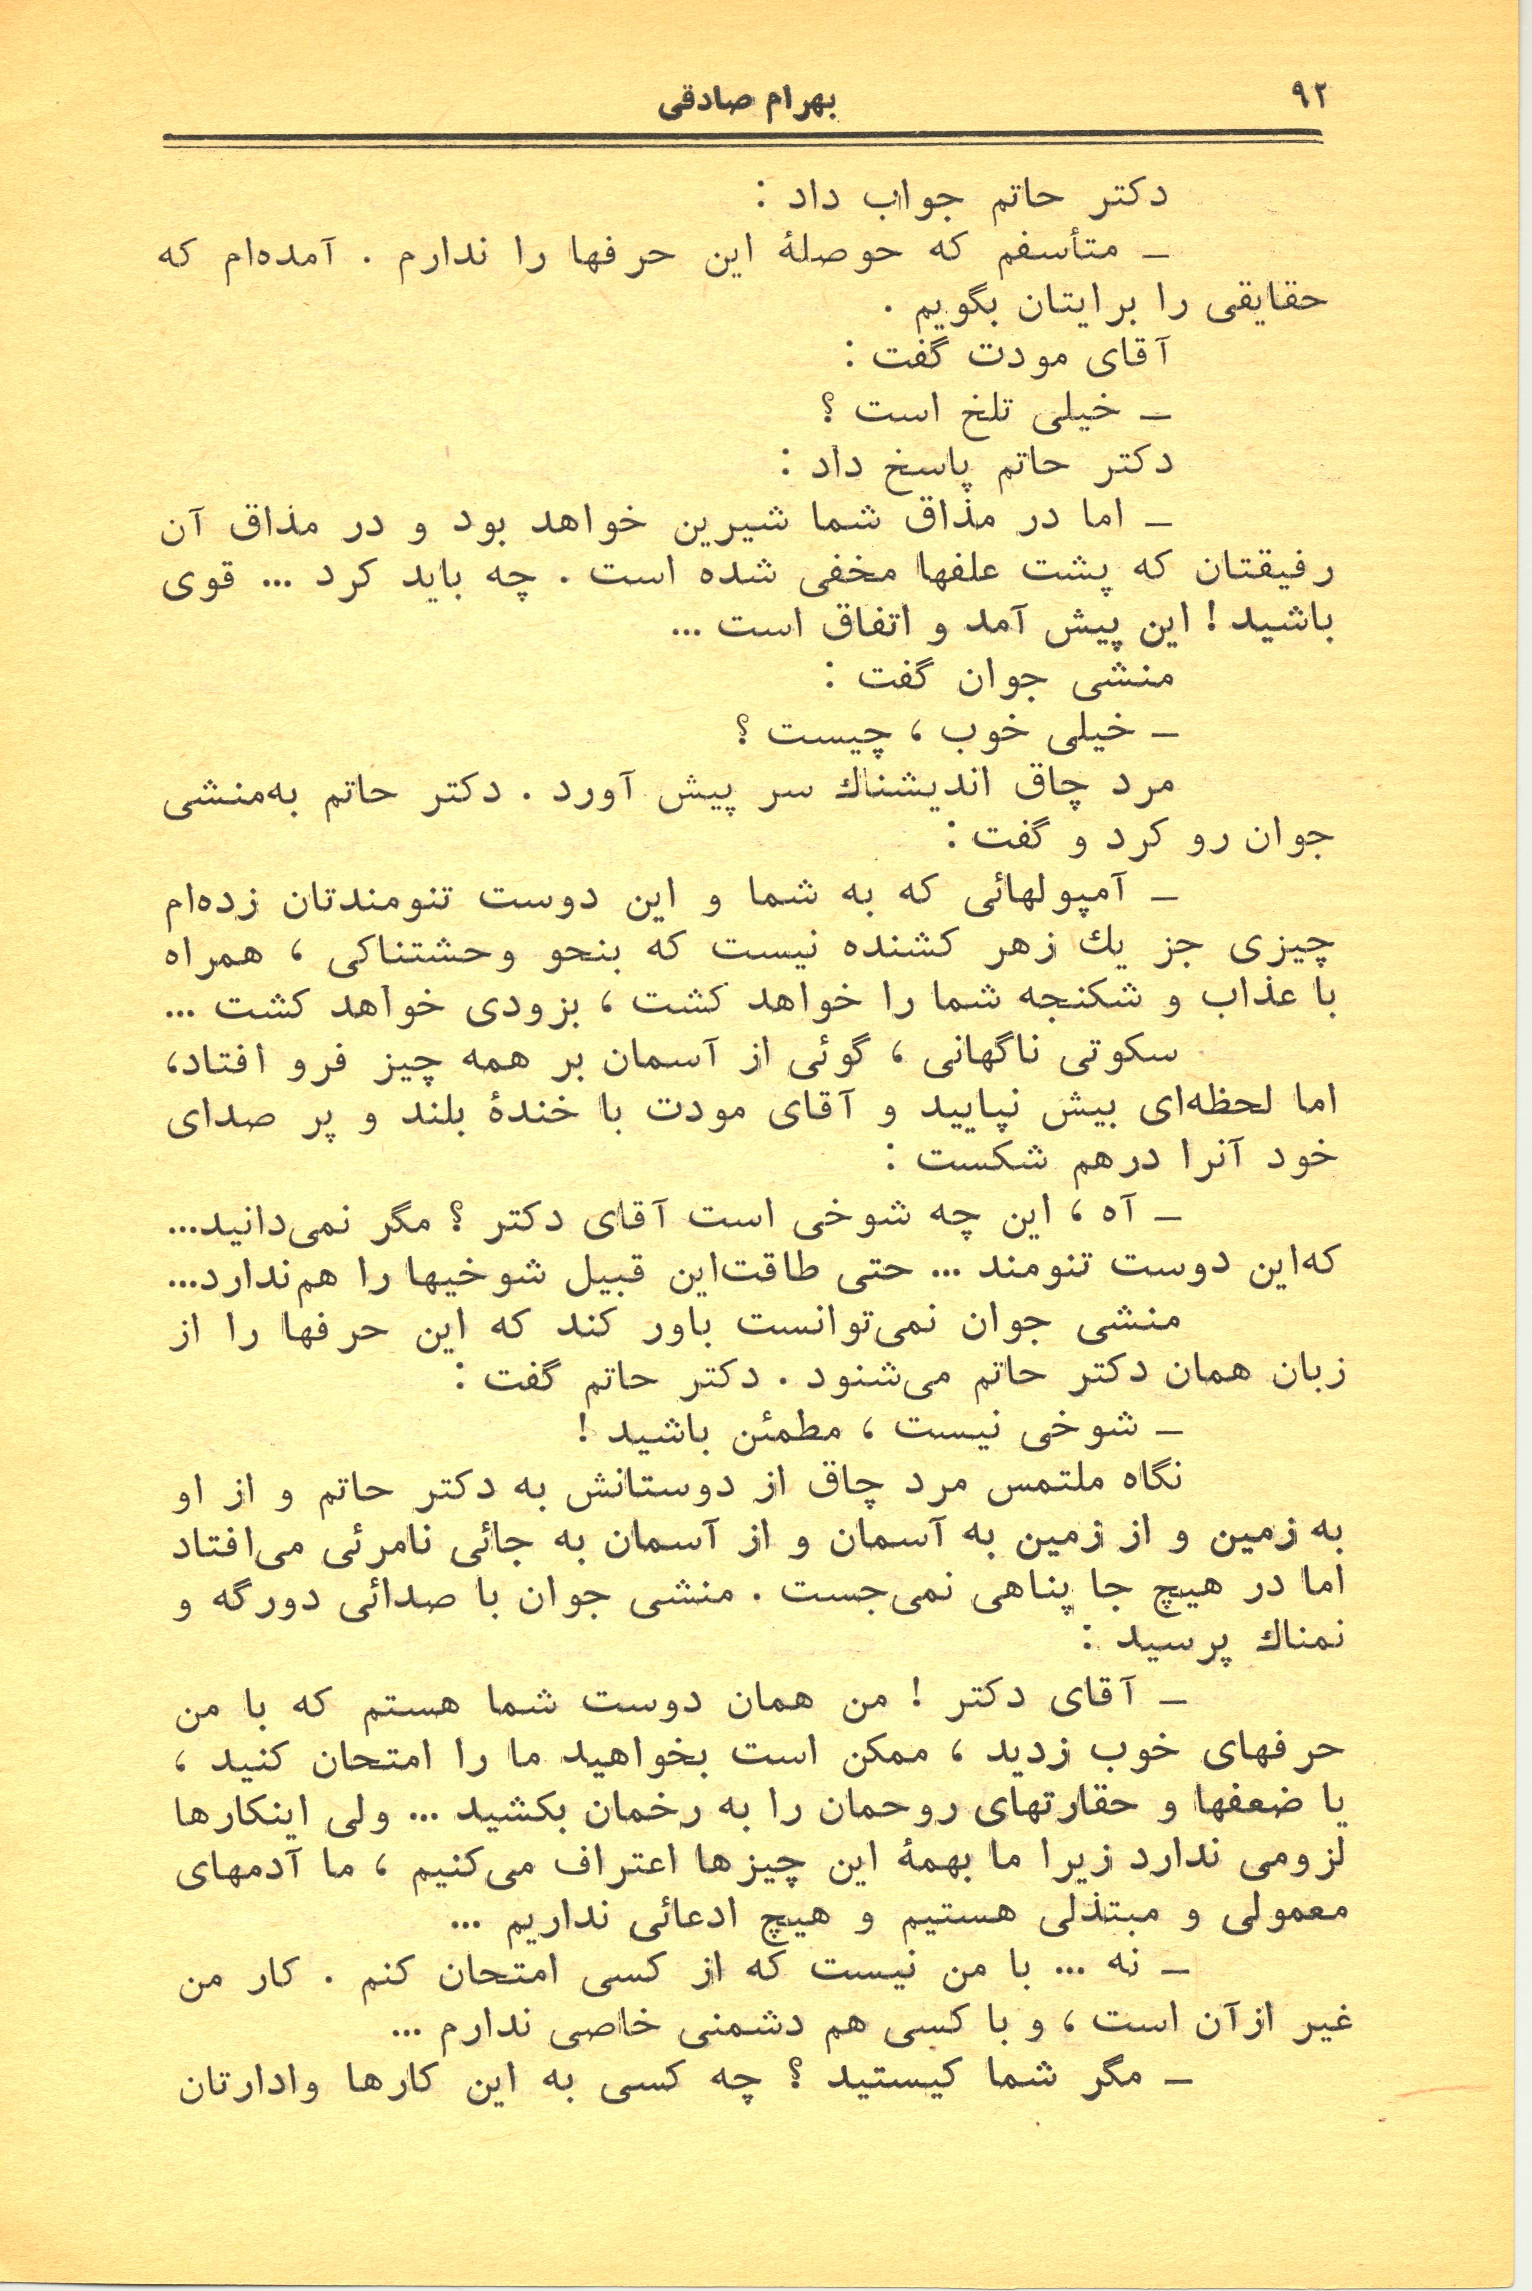 ۹۲
بهرام صادقی
دکتر حاتم جواب داد :
ـ متأسفم که حوصلهٔ این حرفها را ندارم . آمده‌ام که
حقایقی را برایتان بگویم .
آقای مودت گفت :
ـ خیلی تلخ است ؟
دکتر حاتم پاسخ داد :
ـ اما در مذاق شما شیرین خواهد بود و در مذاق آن
رفیقتان که پشت علفها مخفی شده است . چه باید کرد ... قوی
باشید ! این پیش آمد و اتفاق است ...
منشی جوان گفت :
ـ خیلی خوب ، چیست ؟
مرد چاق اندیشناك سر پیش آورد . دکتر حاتم به‌منشی
جوان رو کرد و گفت :
ـ آمپولهائی که به شما و این دوست تنومندتان زده‌ام
چیزی جز یك زهر کشنده نیست که بنحو وحشتناکی ، همراه
با عذاب و شکنجه شما را خواهد کشت ، بزودی خواهد کشت ...
سکوتی ناگهانی ، گوئی از آسمان بر همه چیز فرو افتاد،
اما لحظه‌ای بیش نپایید و آقای مودت با خندهٔ بلند و پر صدای
خود آنرا درهم شکست :
ـ آه ، این چه شوخی است آقای دکتر ؟ مگر نمی‌دانید...
که‌این دوست تنومند ... حتی طاقت‌این قبیل شوخیها را هم‌ندارد...
منشی جوان نمی‌توانست باور کند که این حرفها را از
زبان همان دکتر حاتم می‌شنود . دکتر حاتم گفت :
ـ شوخی نیست ، مطمئن باشید !
نگاه ملتمس مرد چاق از دوستانش به دکتر حاتم و از او
به زمین و از زمین به آسمان و از آسمان به جائی نامرئی می‌افتاد
اما در هیچ جا پناهی نمی‌جست . منشی جوان با صدائی دورگه و
نمناك پرسید :
ـ آقای دکتر ! من همان دوست شما هستم که با من
حرفهای خوب زدید ، ممکن است بخواهید ما را امتحان کنید ،
یا ضعفها و حقارتهای روحمان را به رخمان بکشید ... ولی اینکارها
لزومی ندارد زیرا ما بهمهٔ این چیزها اعتراف می‌کنیم ، ما آدمهای
معمولی و مبتذلی هستیم و هیچ ادعائی نداریم ...
ـ نه ... با من نیست که از کسی امتحان کنم . کار من
غیر ازآن است ، و با کسی هم دشمنی خاصی ندارم ...
ـ مگر شما کیستید ؟ چه کسی به این کارها وادارتان